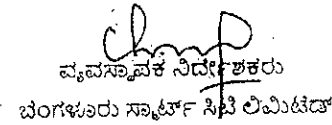 ವ್ಯವಸ್ಥಾಪಕ ನಿರ್ದೇಶಕರು
ಬೆಂಗಳೂರು ಸ್ಮಾರ್ಟ್ ಸಿಟಿ ಲಿಮಿಟೆಡ್